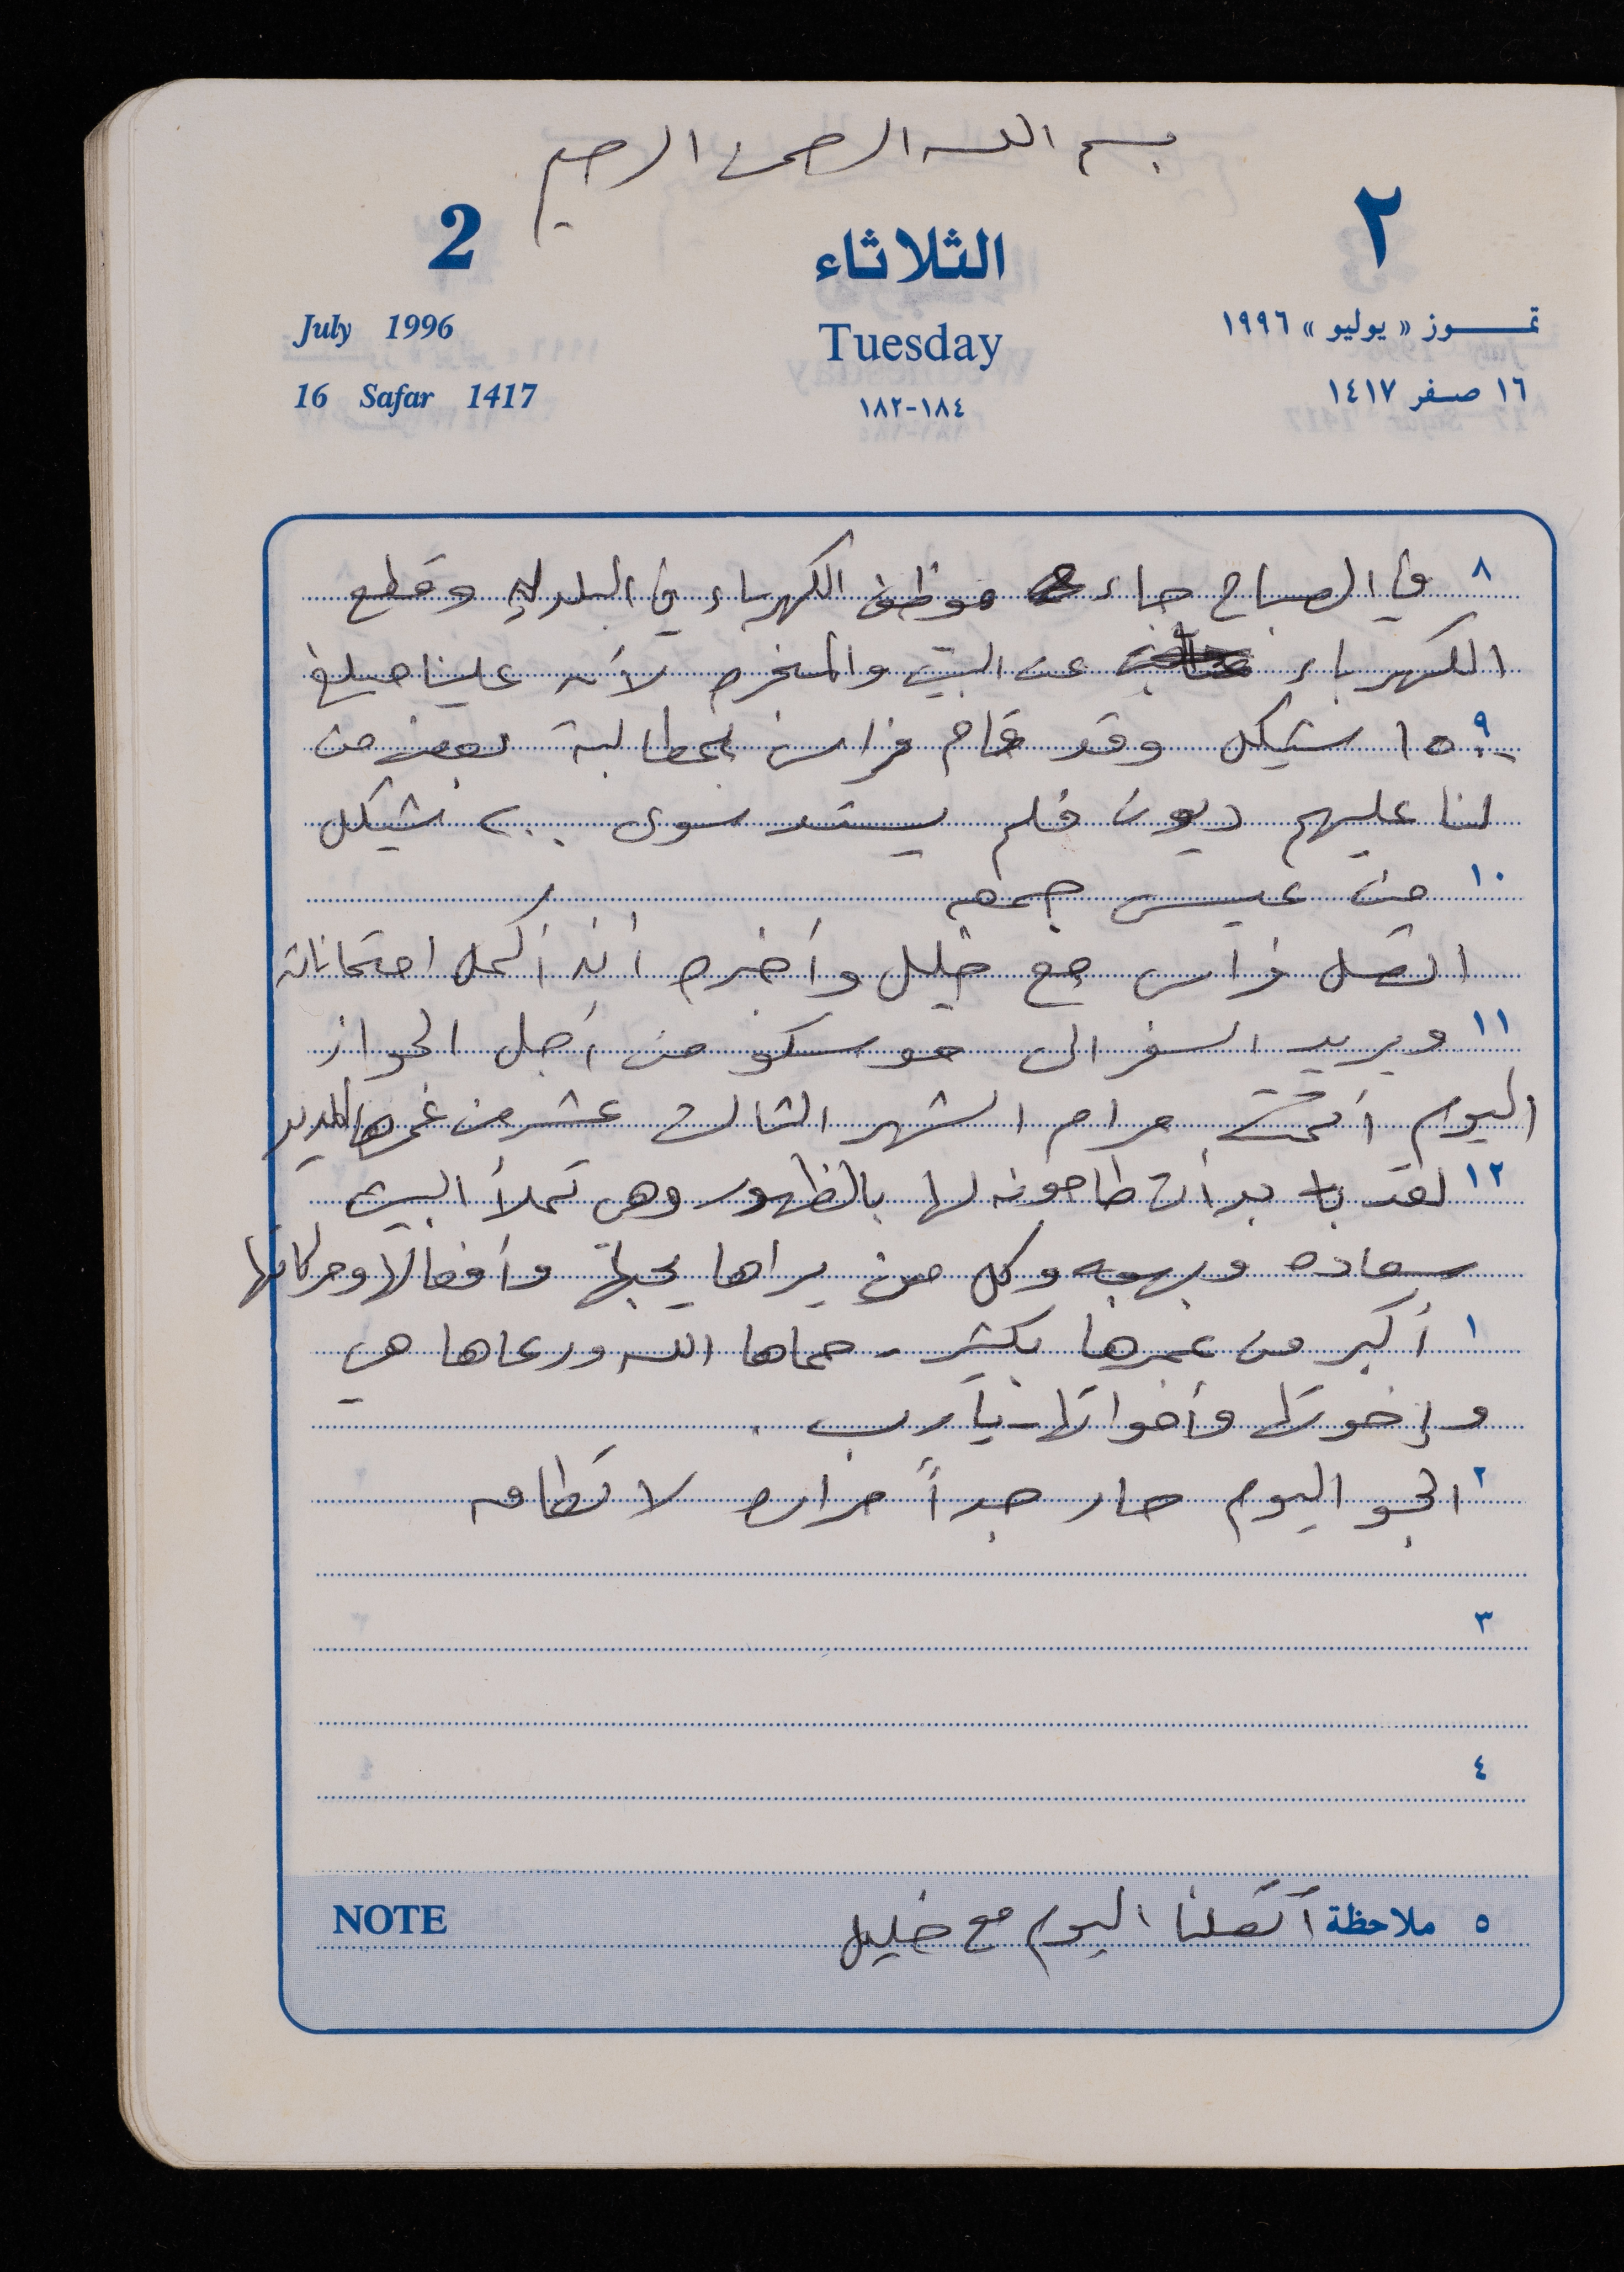 بسم الله الرحمن الرحيم
2 الثلاثاء ٢
July 1996 Tuesday تمـوز «يوليو» ١٩٩٦
16 Safar 1417 ١٨٤-١٨٢ ١٦ صفر ١٤١٧
٨ في الصباح جاء موظف الكهرباء في البلديه وقطع
الكهرباء عن البيت والمخرطه لأنه علينا مبلغ
٩ ١٥٠٠ شيكل وقد قام فراس بمطالبة بعض من
لنا عليهم ديون فلم يسدد سوى ٢٠٠ شيكل
١٠ من عيسى جمعه
اتصل فراس مع خليل وأخبره أنه أكمل امتحاناته
١١ ويريد السفر الى موسكو من أجل الجواز
اليوم أتمت مرام الشهر الثالث عشر من عمرها المديد
١٢ لقد بدأت طاحونه لها بالظهور وهي تملأ البيت
سعاده وبهجه وكل من يراها يحبها وأفعالها وحركاتها
١ أكبر من عمرها بكثير - حماها الله ورعاها هي
وإخوتها وأخواتها - يا رب .
٢ الجو اليوم حار جداً حراره لا تطاق
٣
٤
٥ ملاحظة أتصلنا اليوم مع خليل NOTE